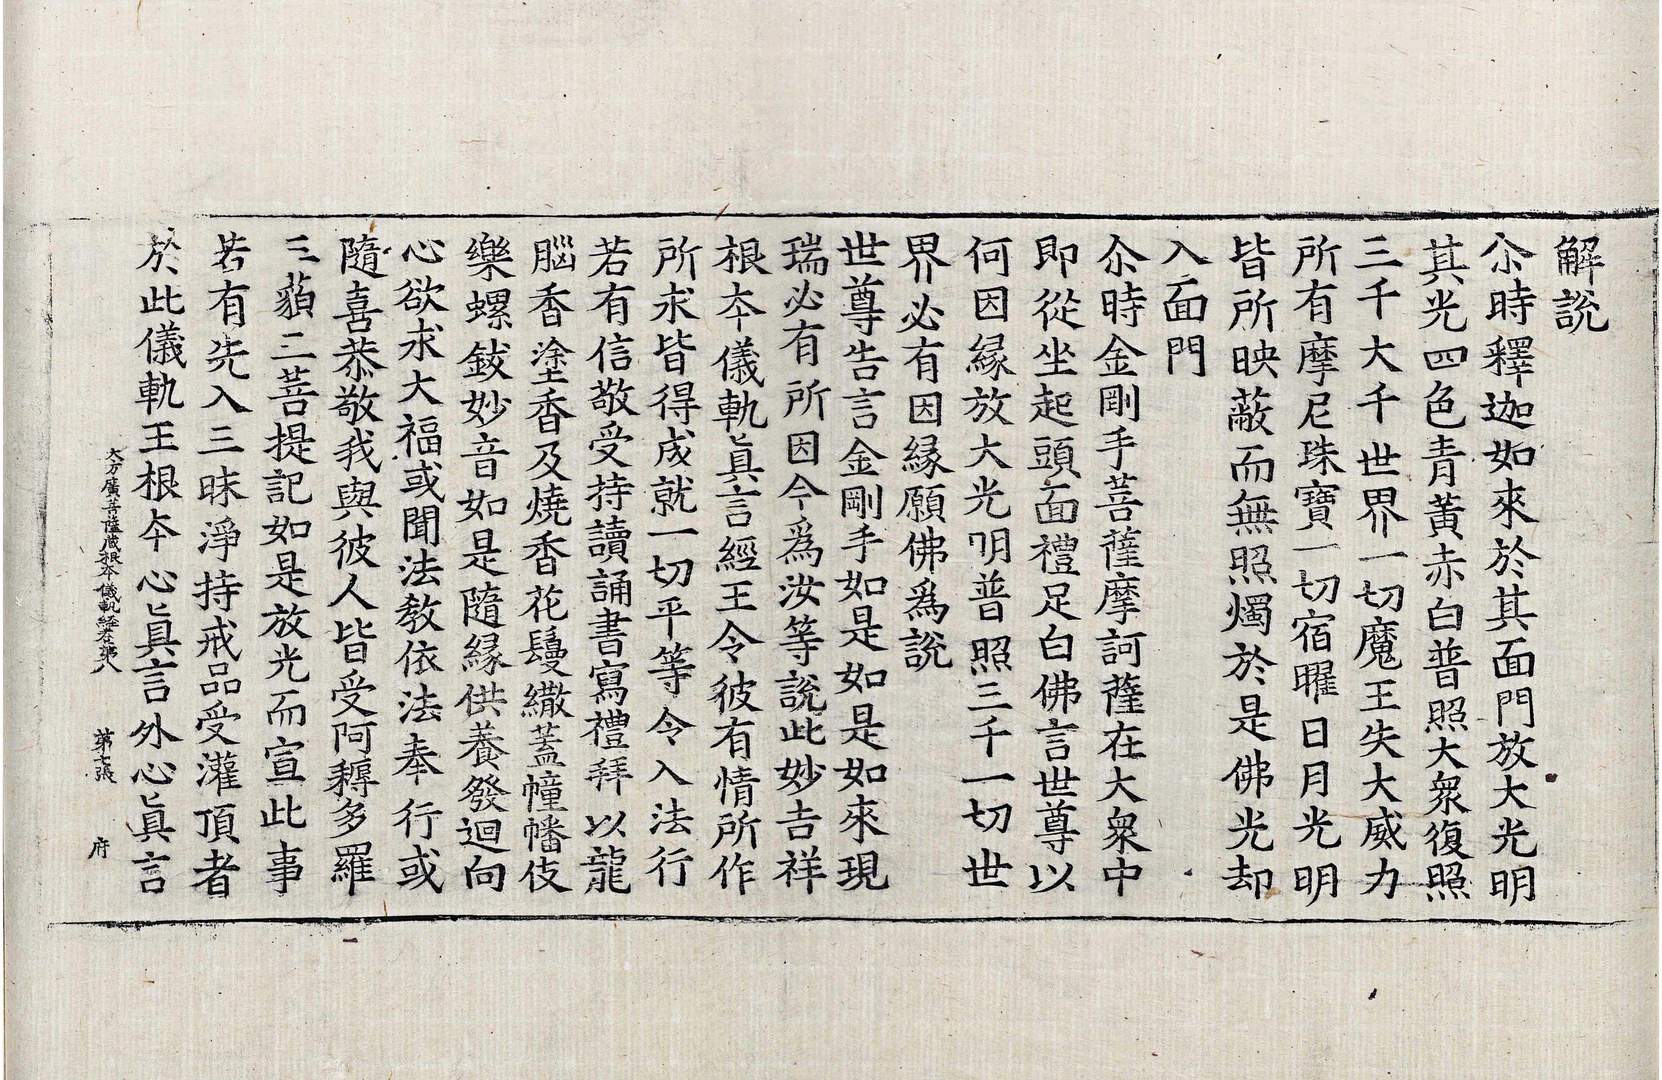 解說
尒時釋迦如來於其面門放大光明
其光四色青黃赤白普照大衆復照
三千大千世界一切魔王失大威力
所有摩尼珠寶一切宿曜日月光明
皆所映蔽而無照燭於是佛光却
入面門
尒時金剛手菩薩摩訶薩在大衆中
即從坐起頭面禮足白佛言世尊以
何因緣放大光明普照三千一切世
界必有因緣願佛爲說
世尊告言金剛手如是如是如來現
瑞必有所因今爲汝等說此妙吉祥
根夲儀軌眞言經王令彼有情所作
所求皆得成就一切平等令入法行
若有信敬受持讀誦書寫禮拜以龍
腦香塗香及燒香花鬘繖蓋幢幡伎
樂螺鈸妙音如是隨緣供養發迴向
心欲求大福或聞法教依法奉行或
隨喜恭敬我與彼人皆受阿耨多羅
三藐三菩提記如是放光而宣此事
若有先入三昧淨持戒品受灌頂者
於此儀軌王根夲心眞言外心眞言
大方廣菩薩藏根夲儀軌経卷第八 第七張 府